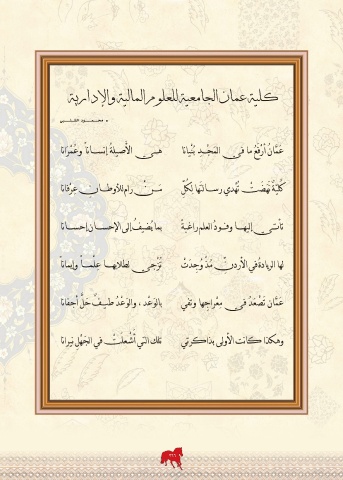 كلية عمان الجامعية للعلوم المالية والإدارية
عَمَّانُ أَرْفَعُ ما في المَجْدِ بُنْيانا هـي الأَصيلةُ إنساناً وعُمْرانا
كُلِّيَّةٌ نَهَضَتْ تُهْدي رسالتَها لِكُلِّ مَـنْ رام للأوطـانِ عِرْفانا
تأتـي إليهـا وفـودُ العلم راغبةً بما يُضيفُ إلى الإحسانِ إحسـانا
لها الريادةُ في الأردنِّ مُذْ وُجِدتْ تُزْجـي لطلابِهـا عِلْمـاً وإيمانا
عَمَّان تَصْعَدُ في مِعْراجِها وتَفي بالوَعْدِ ، والوَعْدُ طيـفٌ حَلَّ أجفانا
وهكذا كانت الأولى بذاكرتي تلك التي أَشْعلَتْ في الجَهْلِ نيرانا